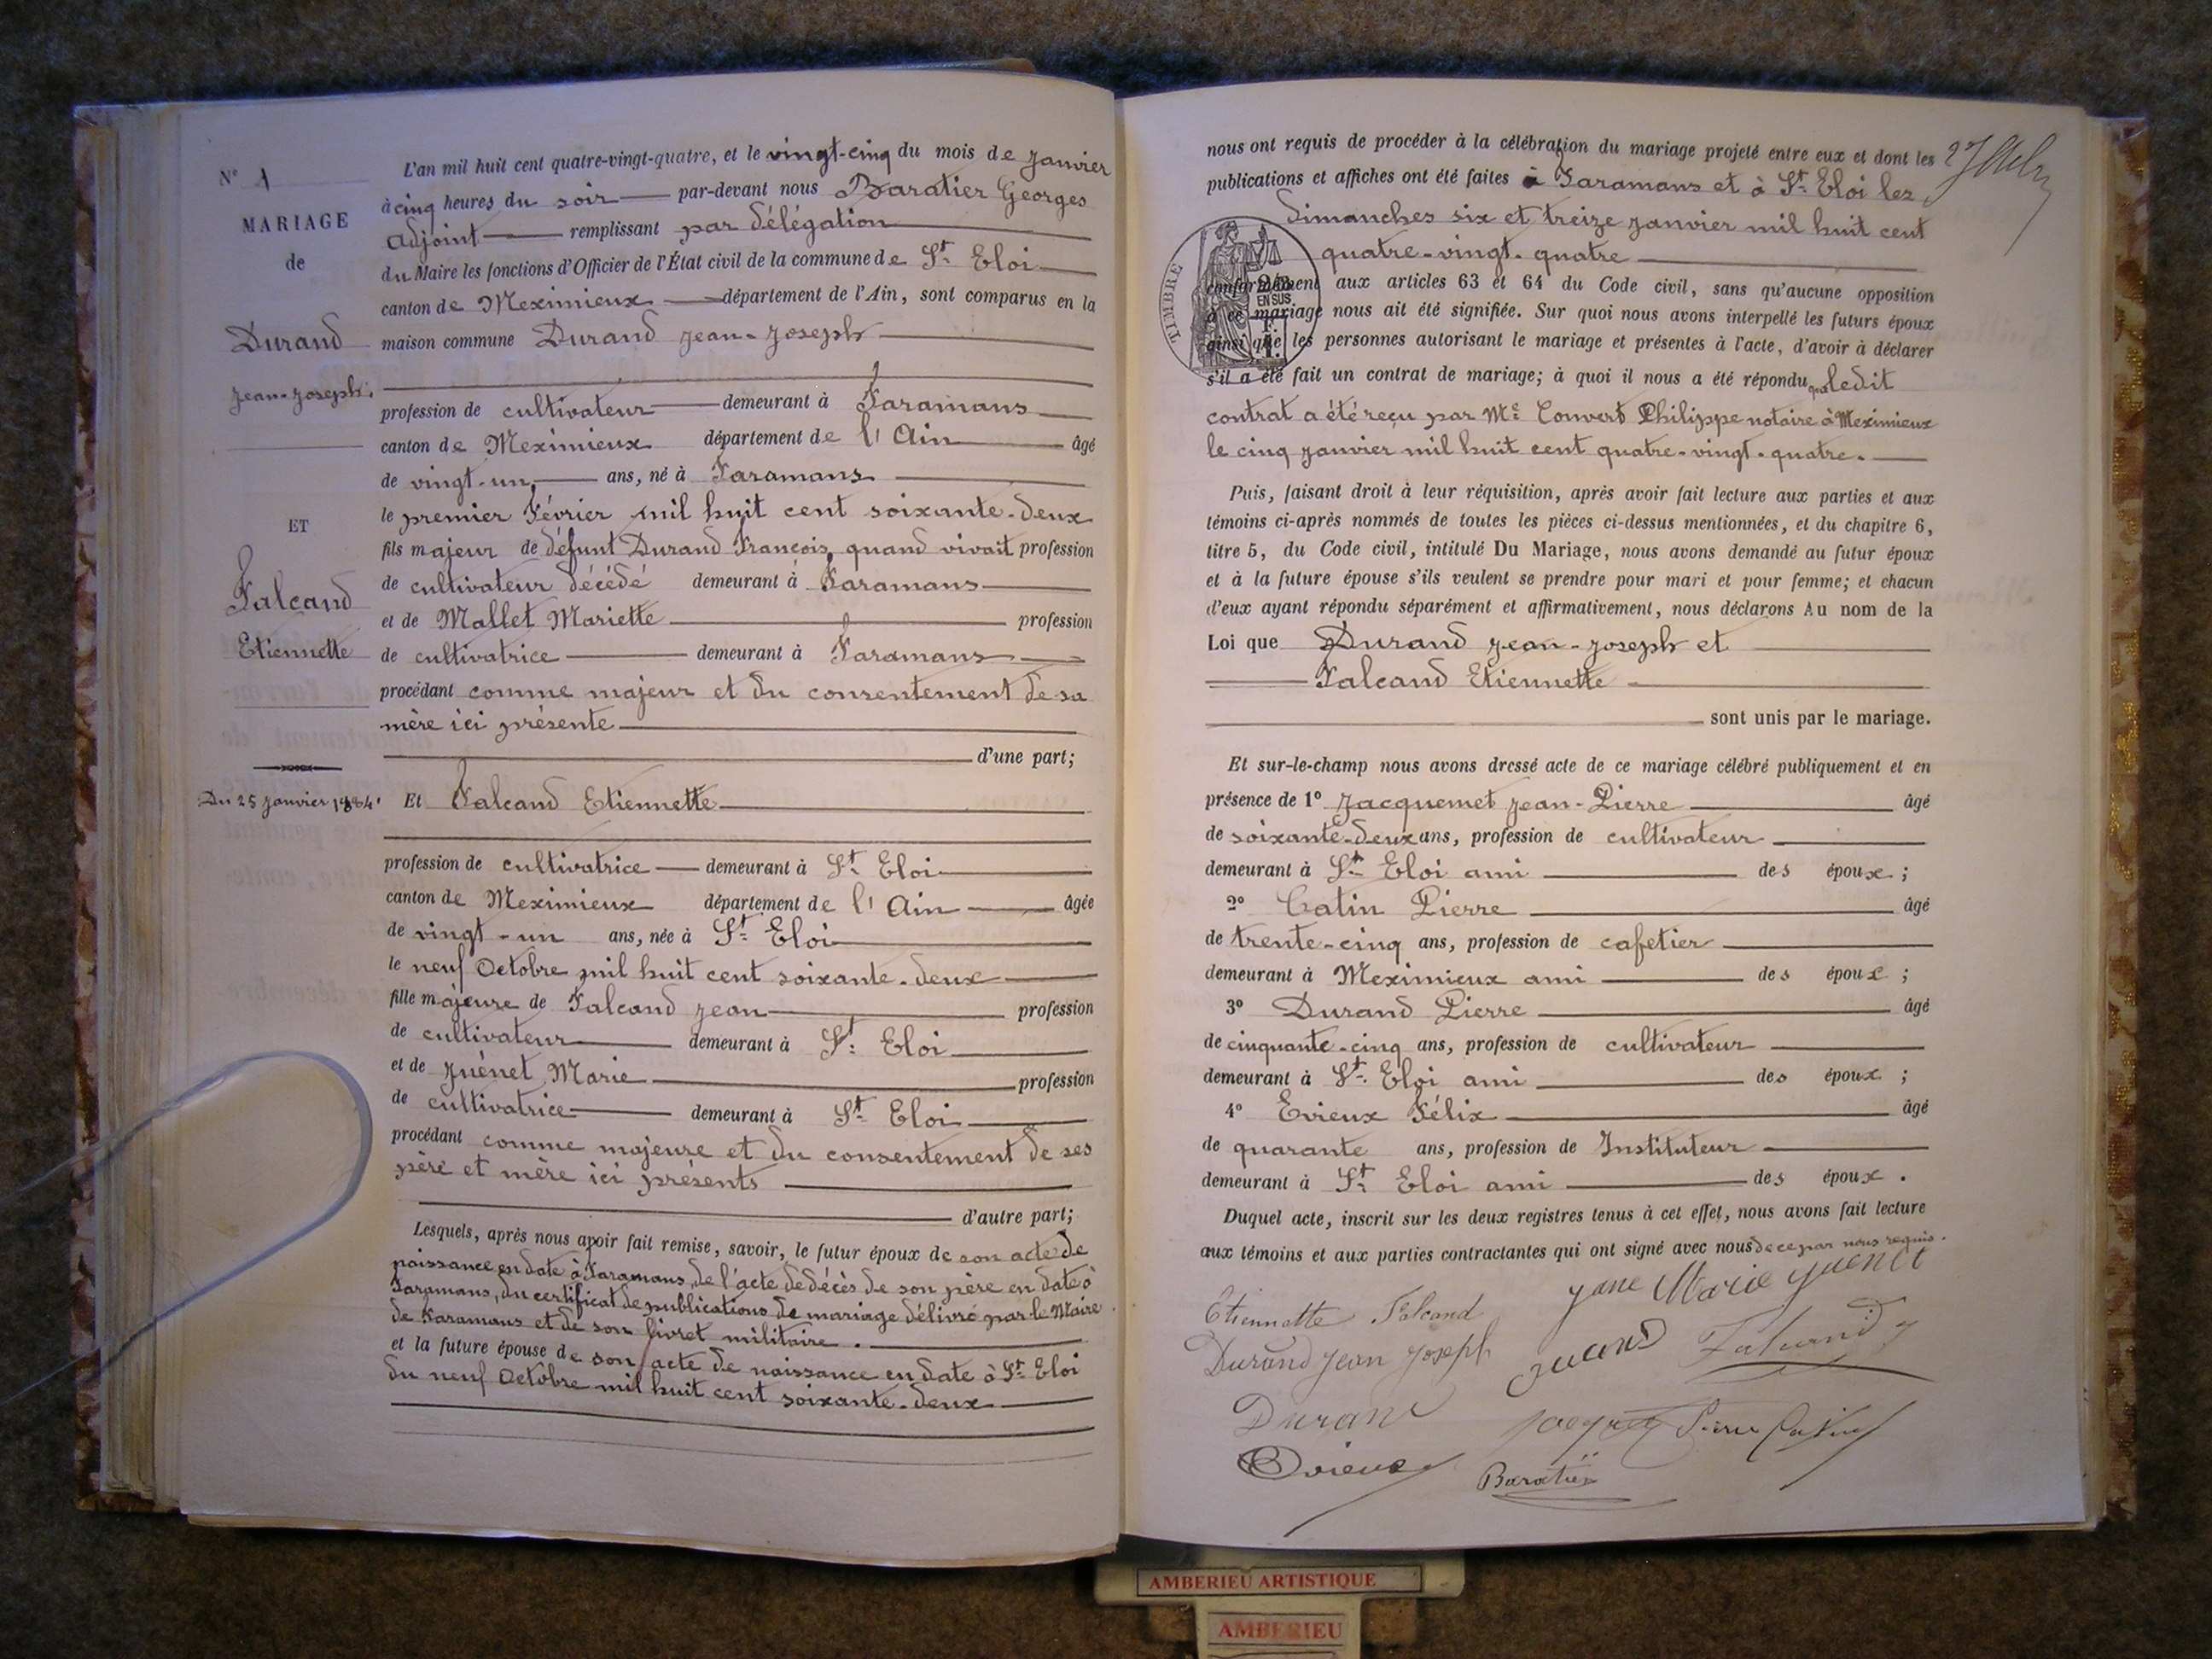 N° 1
MARIAGE
de
Durand
Jean-Joseph.
ET
Falcand
Etiennette
Du 25 Janvier 1884.
L'an mil huit cent quatre-vingt-quatre, et le vingt-cinq du mois de Janvier
à cinq heures du soir par-devant nous Baratier Georges
Adjoint remplissant par délégation
du Maire les fonctions d'Officier de l'État civil de la commune de St. Eloi
canton de Meximieux département de l'Ain, sont comparus en la
maison commune Durand Jean-Joseph
profession de cultivateur demeurant à Faramans
canton de Meximieux département de l'Ain âgé
de vingt-un ans, né à Faramans
le premier Février mil huit cent soixante-deux
fils majeur de défunt Durand François, quand vivait profession
de cultivateur décédé demeurant à Faramans
et de Mallet Mariette profession
de cultivatrice demeurant à Faramans
procédant comme majeur et du consentement de sa
mère ici présente
d'une part;
Et Falcand Etiennette
profession de cultivatrice demeurant à St. Eloi
canton de Meximieux département de l'Ain âgée
de vingt-un ans, née à St. Eloi
le neuf Octobre mil huit cent soixante-deux
fille majeure de Falcand Jean profession
de cultivateur demeurant à St. Eloi
et de Juénet Marie profession
de cultivatrice demeurant à St. Eloi
procédant comme majeure et du consentement de ses
père et mère ici présents
d'autre part;
Lesquels, après nous avoir fait remise, savoir, le futur époux de son acte de
naissance en date à Faramans, de l'acte de décès de son père en date à
Faramans, du certificat de publications de mariage délivré par le Maire
de Faramans et de son livret militaire.
et la future épouse de son acte de naissance en date à St. Eloi
du neuf Octobre mil huit cent soixante-deux
nous ont requis de procéder à la célébration du mariage projeté entre eux et dont les
publications et affiches ont été faites à Faramans et à St. Eloi les
Dimanches six et treize Janvier mil huit cent
quatre-vingt-quatre
TIMBRE
2/10
EN SUS
F.
1.
conformément aux articles 63 et 64 du Code civil, sans qu'aucune opposition
à ce mariage nous ait été signifiée. Sur quoi nous avons interpellé les futurs époux
ainsi que les personnes autorisant le mariage et présentes à l'acte, d'avoir à déclarer
s'il a été fait un contrat de mariage; à quoi il nous a été répondu que ledit
contrat a été reçu par Me. Convert Philippe notaire à Meximieux
le cinq Janvier mil huit cent quatre-vingt-quatre.
Puis, faisant droit à leur réquisition, après avoir fait lecture aux parties et aux
témoins ci-après nommés de toutes les pièces ci-dessus mentionnées, et du chapitre 6,
titre 5, du Code civil, intitulé Du Mariage, nous avons demandé au futur époux
et à la future épouse s'ils veulent se prendre pour mari et pour femme; et chacun
d'eux ayant répondu séparément et affirmativement, nous déclarons Au nom de la
Loi que Durand Jean-Joseph et
Falcand Etiennette
sont unis par le mariage.
Et sur-le-champ nous avons dressé acte de ce mariage célébré publiquement et en
présence de 1° Jacquemet Jean-Pierre âgé
de soixante-deux ans, profession de cultivateur
demeurant à St. Eloi ami des époux;
2° Catin Pierre âgé
de trente-cinq ans, profession de cafetier
demeurant à Meximieux ami des époux;
3° Durand Pierre âgé
de cinquante-cinq ans, profession de cultivateur
demeurant à St. Eloi ami des époux;
4° Evieux Félix âgé
de quarante ans, profession de Instituteur
demeurant à St. Eloi ami des époux.
Duquel acte, inscrit sur les deux registres tenus à cet effet, nous avons fait lecture
aux témoins et aux parties contractantes qui ont signé avec nous de ce par nous requis.
Etiennette Falcand Marie Juenet
Durand Jean Joseph
Durand Pierre Catin
Evieux Baratier
AMBERIEU ARTISTIQUE
AMBERIEU